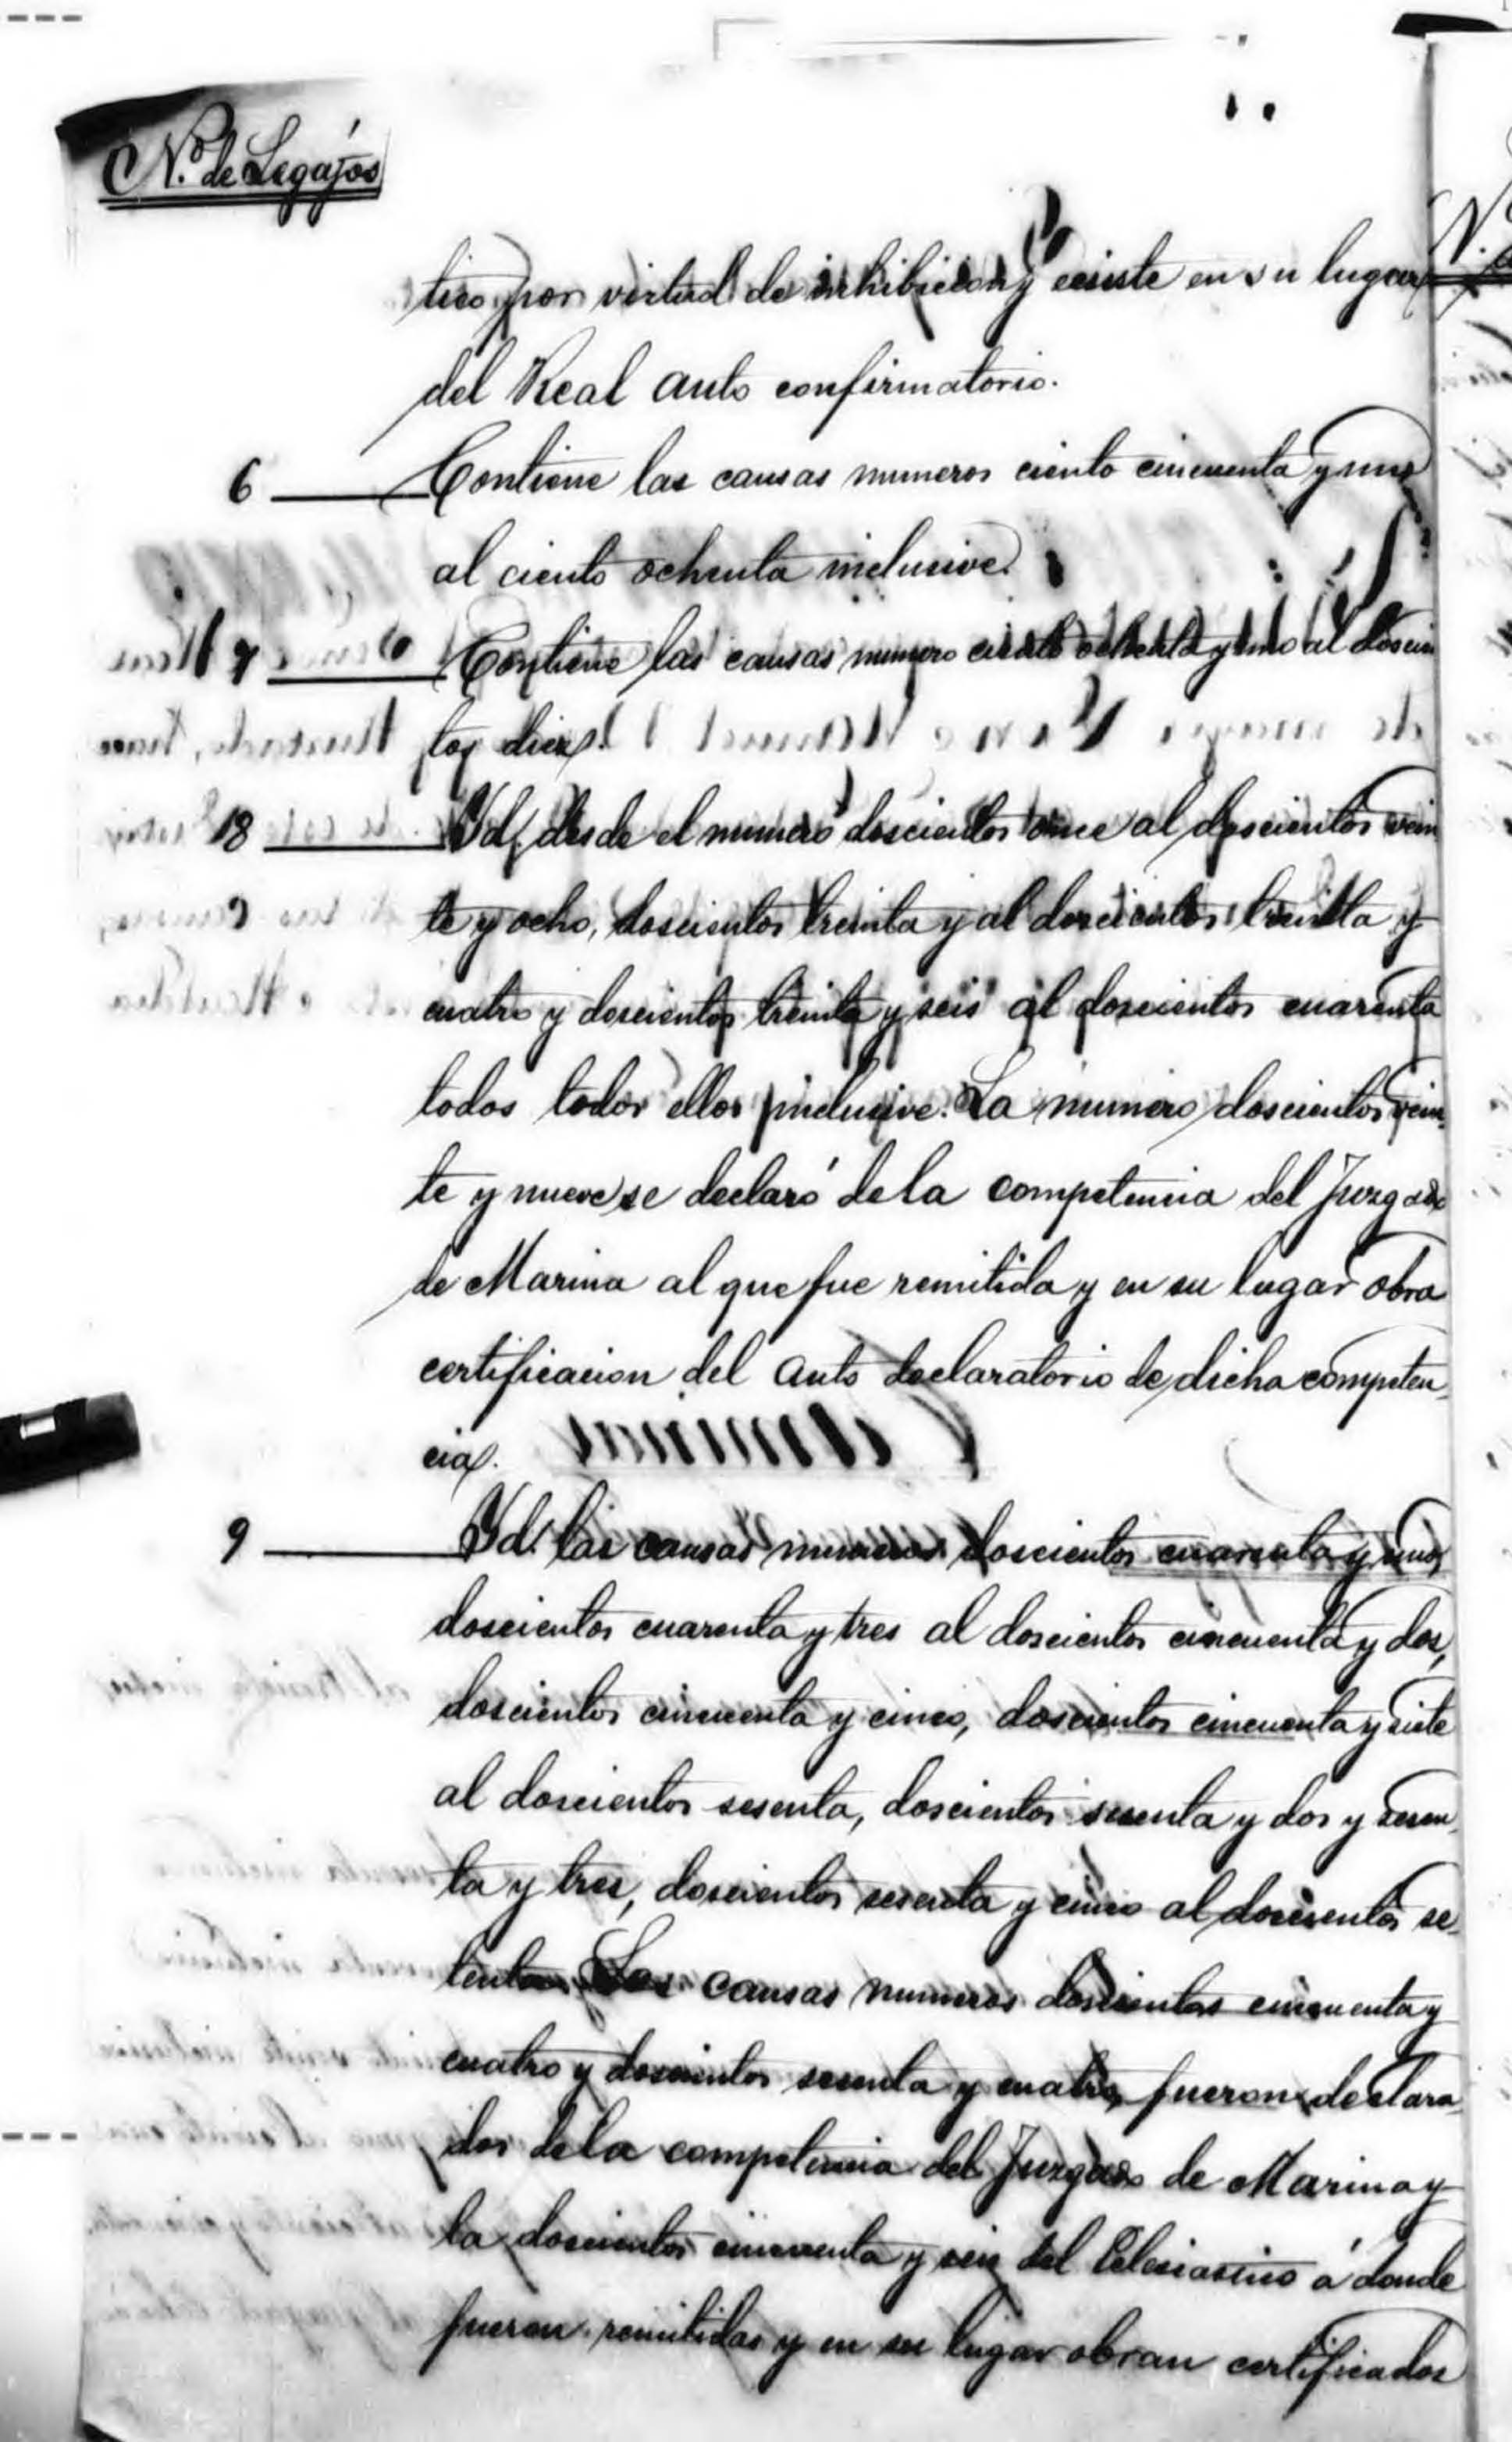 N.º de Legajos
tico por virtud de inhibicion y ecsiste en su lugar
del Real auto confirmatorio.
6 Contiene las causas numeros ciento cincuenta y uno
al ciento ochenta inclusive.
7 Contiene las causas numero ciento ochenta y uno al doscien
tos diez.
18 Yd. desde el numero doscientos once al doscientos vein
te y ocho, doscientos treinta y al doscientos treinta y
cuatro y doscientos treinta y seis al doscientos cuarenta
todos todos ellos inclusive. La numero doscientos vein
te y nueve se declaró de la competencia del Juzgado
de Marina al que fue remitida y en su lugar obra
certificacion del auto declaratorio de dicha competen
cia.
9 Yd. las causas numeros doscientos cuarenta y uno,
doscientos cuarenta y tres al doscientos cincuenta y dos,
doscientos cincuenta y cinco, doscientos cincuenta y siete
al doscientos sesenta, doscientos sesenta y dos y sesen
ta y tres, doscientos sesenta y cinco al doscientos se
tenta. Las causas numeros doscientos cincuenta y
cuatro y doscientos sesenta y cuatro, fueron declara
dos de la competencia del Juzgado de Marina y
la doscientos cincuenta y seis del Eclesiastico á donde
fueron remitidas y en su lugar obran certificados